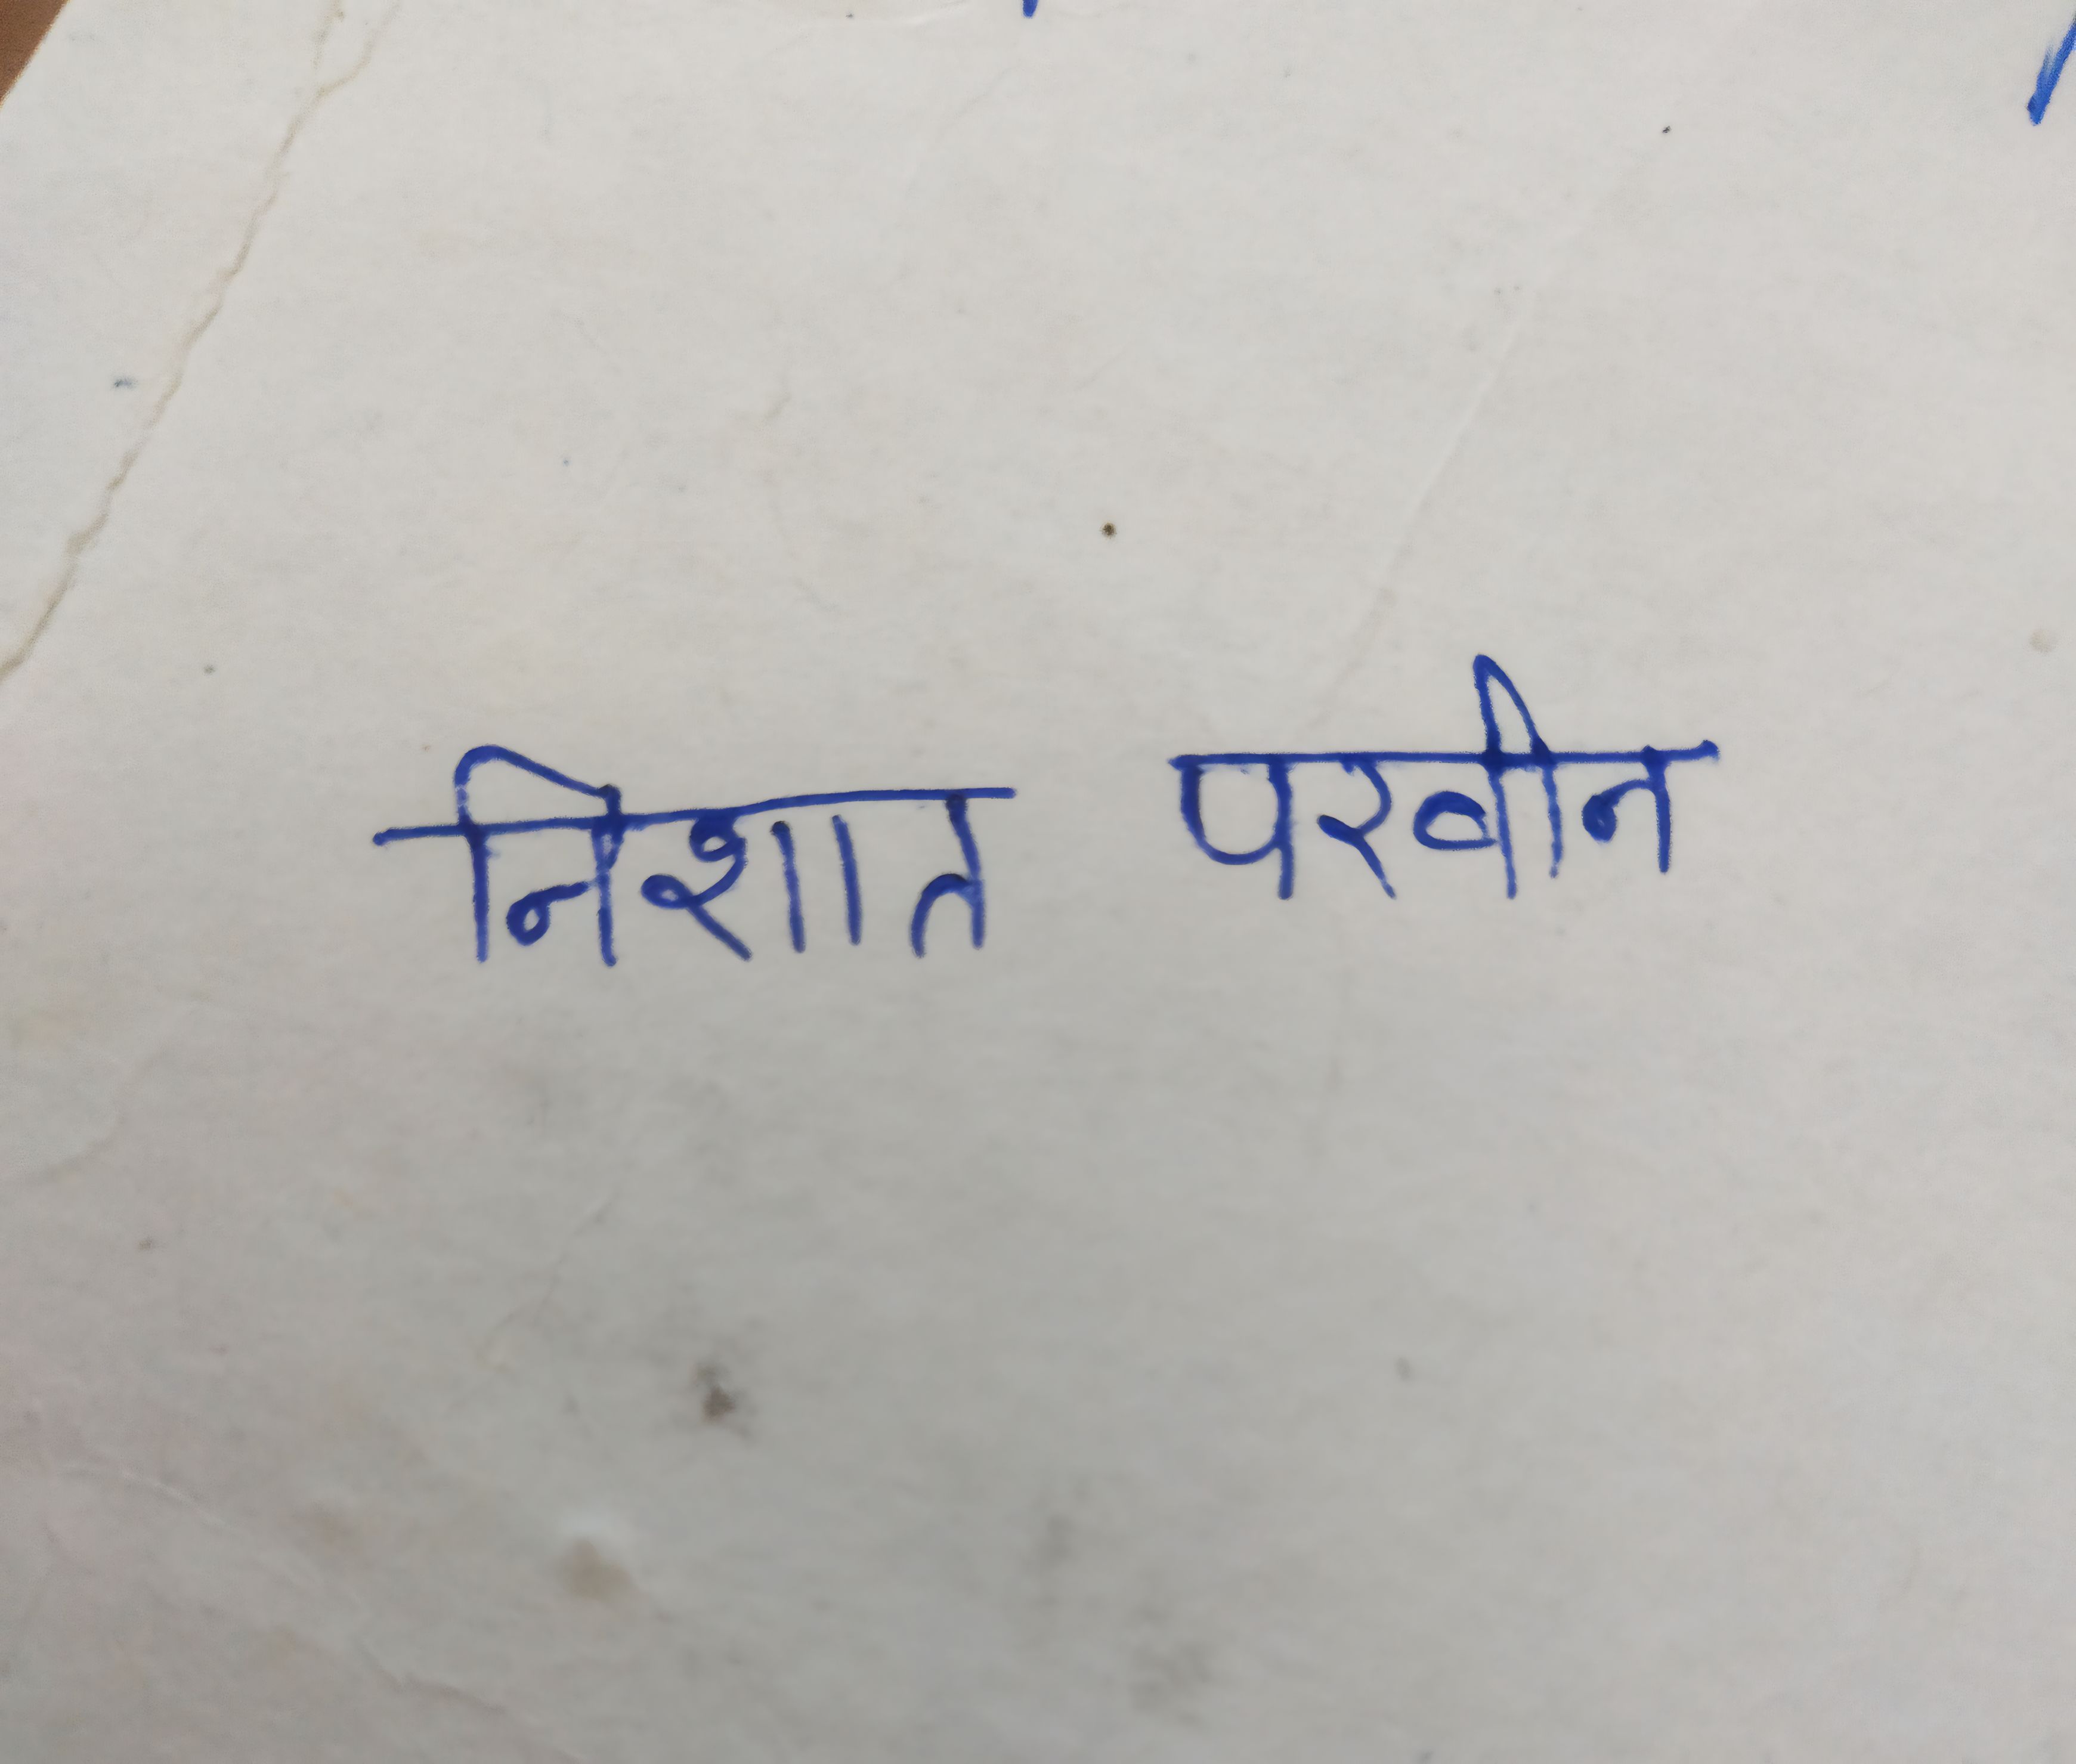 निशात परवीन